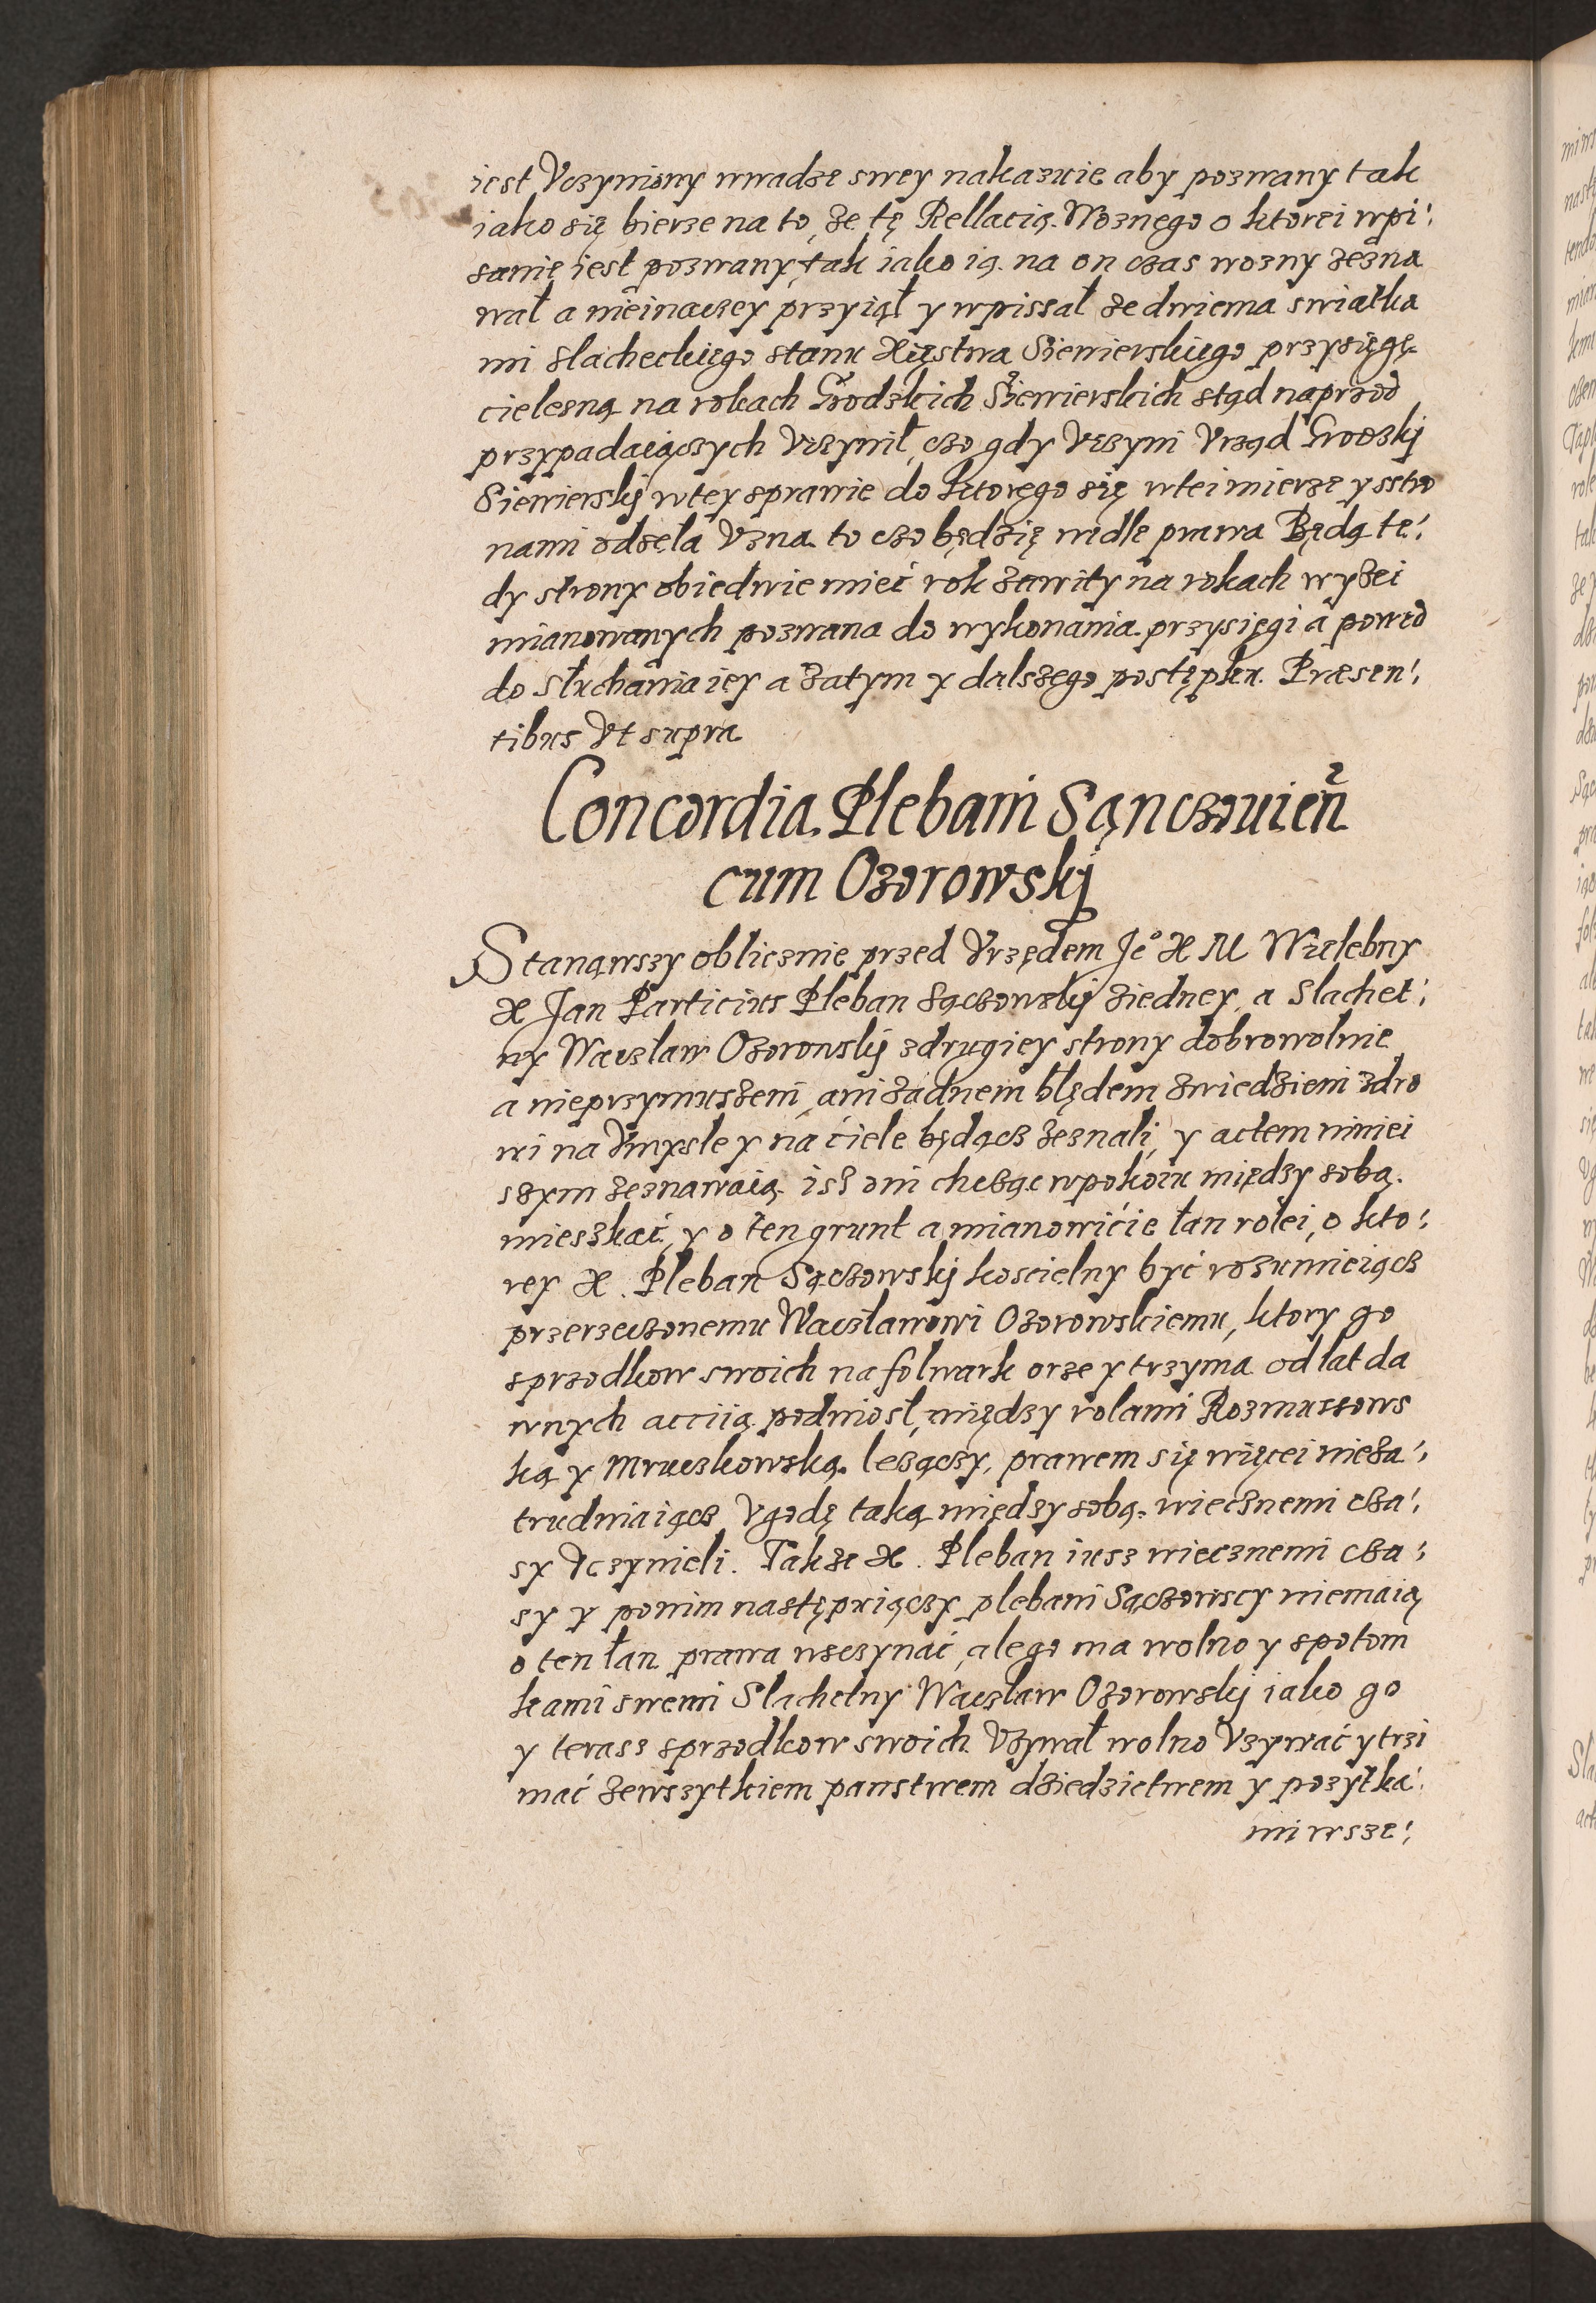 iest Vczyniony wwadze swey nakazuie aby pozwany tak
iako się bierze na to, że tę Rellacią Woznego o ktorei wpi¦
sanie iest pozwany, tak iako ią na on czas wozny zezna
wał a nieinaczey przyiął y wpissał ze dwiema swiatka
mi slacheckiego stanu Xięstwa Siewierskiego przysięgę
cielesną na rokach Grodzkich Siewierskich stąd naprzod
przypadaiączych Vczynił, czo gdy Vczyni Vrząd Grodzkj
Siewierskj wtey sprawie do ktorego się wtei mierze y sstro
nami odseła Vzna to czo będzię wedle prawa Będą te¦
dy strony obiedwie mieć rok zawity na rokach wyżei
mianowanych pozwana do wykonania przysięgi a powod
do słuchania iey a zatym y dalszego postępku. Præsen¦
tibus Vt supra
Concordia Plebani Sączouień
cum Ozorowskj
Stanąwszy oblicznie przed Vrzędem Je° X M Wielebny
X Jan Particius Pleban Sączowskj ziedney, a Slachet¦
ny Waczlaw Ozorowskj zdrugiey strony dobrowolnie
a nieprzymuszeni, ani żadnem błędem zwiedzieni zdro
wi na Vmysle y na ciele będącz zeznali, y actem niniei
szym zeznawaią isz oni chcząc wpokoiu między sobą
mieszkać, y o ten grunt a mianowićie łan rolei, o kto¦
rey X. Pleban Sączowskj koscielny być rozumieiącz
przerzeczonemu Waczławowi Ozorowskiemu, ktory go
sprzodkow swoich na folwark orze y trzyma od lat da
wnych acciią podniosł, między rolami Rozmussows
ką y Mruczkowską leżączy, prawem się więcei nieza¦
trudniaiącz Vgodę taką między sobą wiecznemi cza¦
sy Vczynieli. Takze X. Pleban iusz wiecznemi cza¦
sy y ponim następuiączy plebani Sączowscy niemaią
o ten łan prawa wsczynać, alego ma wolno y spotom
kami swemi Slachetny Waczlaw Ozorowskj iako go
y terasz sprzodkow swoich Vzywał wolno Vzywać y trzi
mać zewszytkiem panstwem dziedzictwem y pozytka¦
mi wsze¦